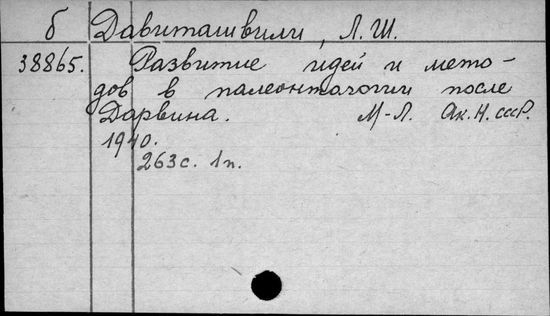 б Давиташвили, Л.Ш.
38865. Развитие идей и мето-
дов в палеонтологии после
Дарвина. М-Л. Ак.Н.СССР.
1940.
263с. 1п.